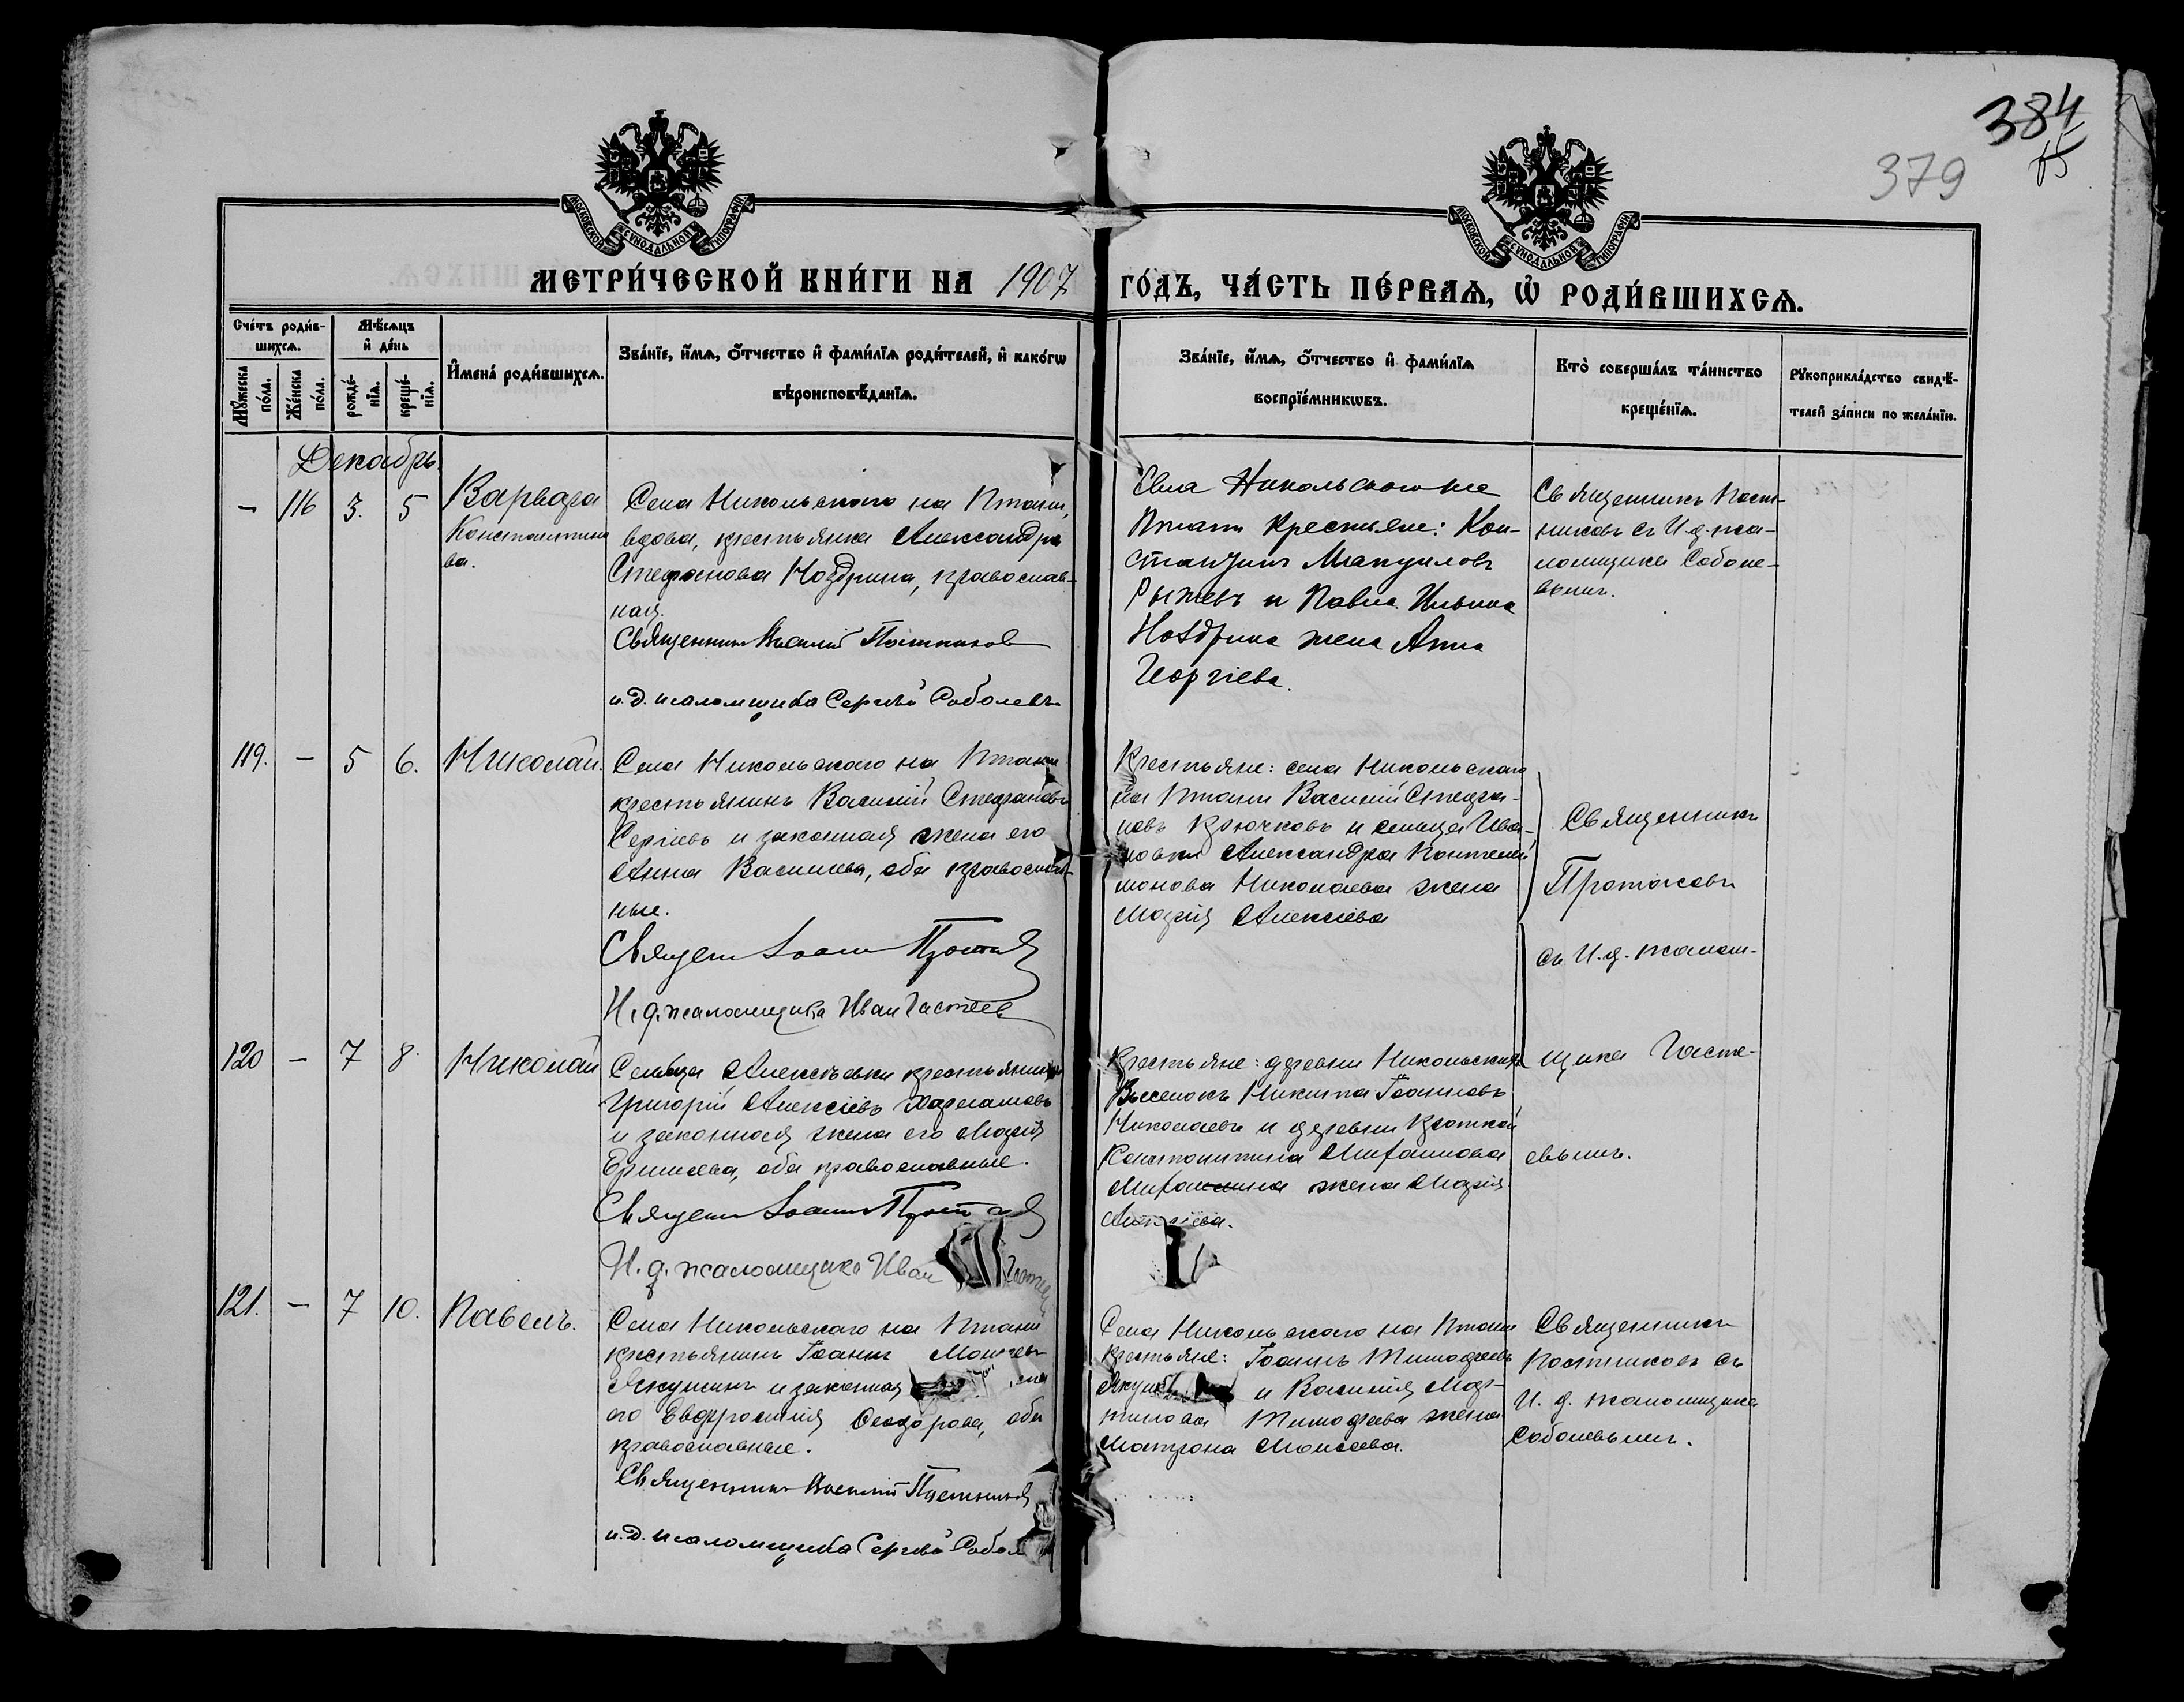 384
379
МОСКОВСКОЙ СѴНОДАЛЬНОЙ ТИПОГРАФІИ
МОСКОВСКОЙ СѴНОДАЛЬНОЙ ТИПОГРАФІИ
МЕТРИ́ЧЕСКОЙ КНИ́ГИ НА 1907 ГО́ДЪ, ЧА́СТЬ ПЕ́РВАѦ, Ѡ҆ РОДИ́ВШИХСѦ.
Сче́тъ роди́в-
шихсѧ.
Мѣ́сѧцъ
и҆ де́нь
Мꙋ́жеска
по́ла.
Же́нска
по́ла.
рожде́-
нїѧ.
креще́-
нїѧ.
И҆мена̀ роди́вшихсѧ.
Зва́нїе, и҆́мѧ, ѻ҆́тчество и҆ фами́лїѧ роди́телей, и҆ како́гѡ
вѣроисповѣ́данїѧ.
Зва́нїе, и҆́мѧ, ѻ҆́тчество и҆ фами́лїѧ
воспрїе́мникѡвъ.
Кто̀ соверша́лъ та́инство
креще́нїѧ.
Рꙋкоприкла́дство свидѣ́-
телей за́писи по жела́нїю.
Декабрь.
– 116 3. 5
Варвара
Константино
ва.
Села Никольскаго на Птани,
вдова, крестьянка Александра
Стефанова Ноздрина, православ-
ная.
Священник Василий Постников
и.д. псаломщика Сергѣй Соболевъ
Села Никольскаго на
Птани крестьяне: Кон-
стантинъ Рыжевъ и Павла Ильина
Ноздрина жена Анна
Георгіева.
Священникъ Пост-
никовъ съ И.д. пса-
ломщика Соболе-
вымъ.
119. – 5 6.
Николай.
Села Никольскаго на Птани
крестьянинъ Василій Стефановъ
Сергіевъ и законная жена его
Анна Васильева, оба православ-
ные.
Священ Іоанн
И.д. псаломщика Иван Гастевъ
Крестьяне: села Никольскаго
на Птани Василій Стефа-
новъ Крючковъ и сельца Ива-
новки Александра Пантелей-
монова Николаева жена
Марія Алексіева
Священникъ
Протасовъ
съ И.д. псалом-
щика Гасте-
евымъ.
120 – 7 8.
Николай
Сельца Алексѣевки крестьянинъ
Григорій Алексіевъ
и законная жена его Марія
оба православные.
Священ Іоанн
И.д. псаломщика Иван
Крестьяне: деревни Никольскихъ
Выселокъ Никита Іоанновъ
Николаевъ и деревни Кроткой
Константина
жена Марія
121. – 7 10.
Павелъ.
Села Никольскаго на Птани
крестьянинъ Іоаннъ
Якушинъ и законная
его Евфросинія Ѳеодорова, оба
православные.
Священник Василий Постников
и.д. псаломщика Сергѣй Собол
Села Никольскаго на Птани
крестьяне: Іоаннъ Тимофеевъ
и Василія Мар-
тинова Тимофеева жена
Матрона Моисеева.
Священникъ
Постниковъ съ
И.д. псаломщика
Соболевымъ.